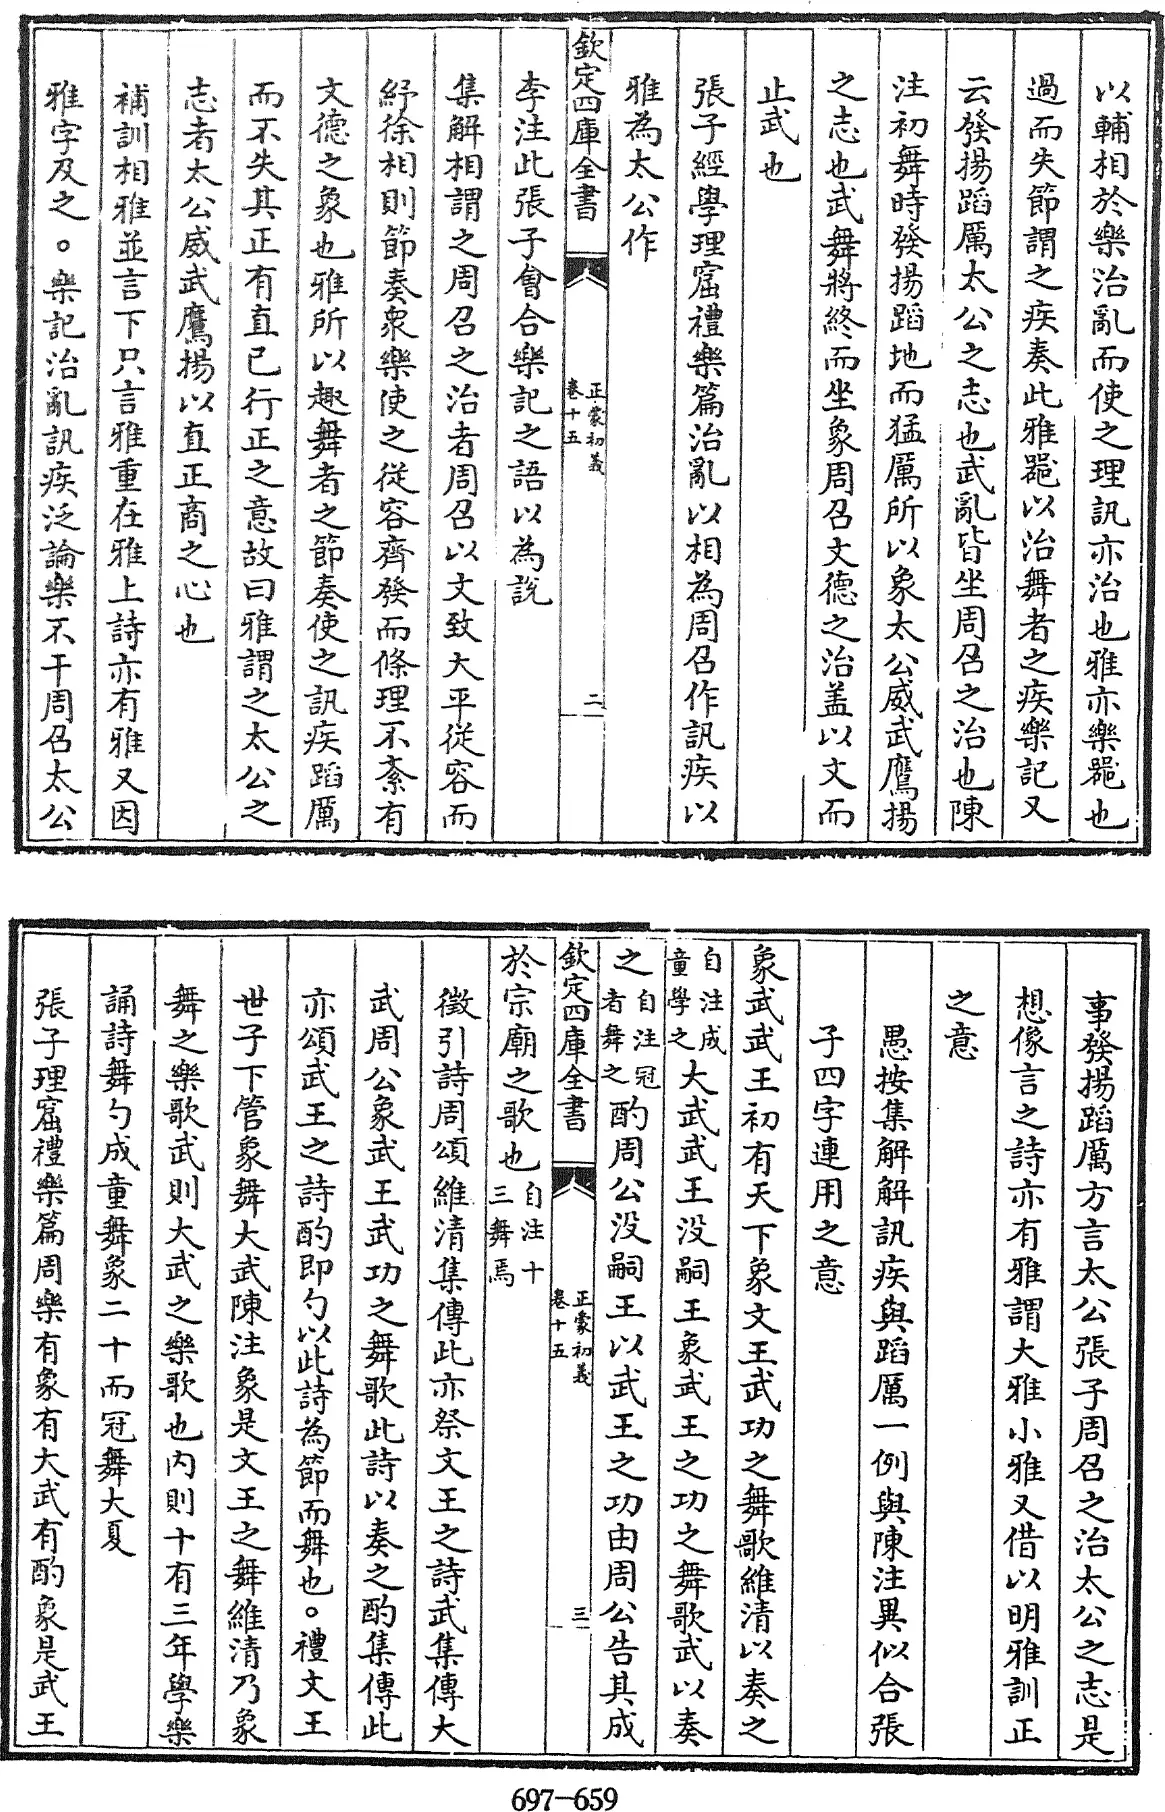 以輔相於樂治亂而使之理訊亦治也雅亦樂器也
過而失節謂之疾奏此雅器以治舞者之疾樂記又
云發揚蹈厲太公之志也武亂皆坐周召之治也陳
注初舞時發揚蹈地而猛厲所以象太公威武鷹揚
之志也武舞將終而坐象周召文德之治盖以文而
止武也
張子經學理窟禮樂篇治亂以相為周召作訊疾以
雅為太公作
欽定四庫全書
正蒙初義
卷十五
二
李注此張子會合樂記之語以為説
集解相謂之周召之治者周召以文致太平從容而
紓徐相則節奏衆樂使之從容齊發而條理不紊有
文德之象也雅所以趣舞者之節奏使之訊疾蹈厲
而不失其正有直已行正之意故曰雅謂之太公之
志者太公威武鷹揚以直正商之心也
補訓相雅並言下只言雅重在雅上詩亦有雅又因
雅字及之。樂記治亂訊疾泛論樂不干周召太公
事發揚蹈厲方言太公張子周召之治太公之志是
想像言之詩亦有雅謂大雅小雅又借以明雅訓正
之意
愚按集解解訊疾與蹈厲一例與陳注異似合張
子四字連用之意
象武武王初有天下象文王武功之舞歌維清以奏之
自注成童學之大武武王没嗣王象武王之功之舞歌武以奏
之自注冠者舞之酌周公没嗣王以武王之功由周公告其成
欽定四庫全書
正蒙初義
卷十五
三
於宗廟之歌也自注十三舞焉
徵引詩周頌維清集傳此亦祭文王之詩武集傳大
武周公象武王武功之舞歌此詩以奏之酌集傳此
亦頌武王之詩酌即勺以此詩為節而舞也。禮文王
世子下管象舞大武陳注象是文王之舞維清乃象
舞之樂歌武則大武之樂歌也内則十有三年學樂
誦詩舞勺成童舞象二十而冠舞大夏
張子理窟禮樂篇周樂有象有大武有酌象是武王
697-659